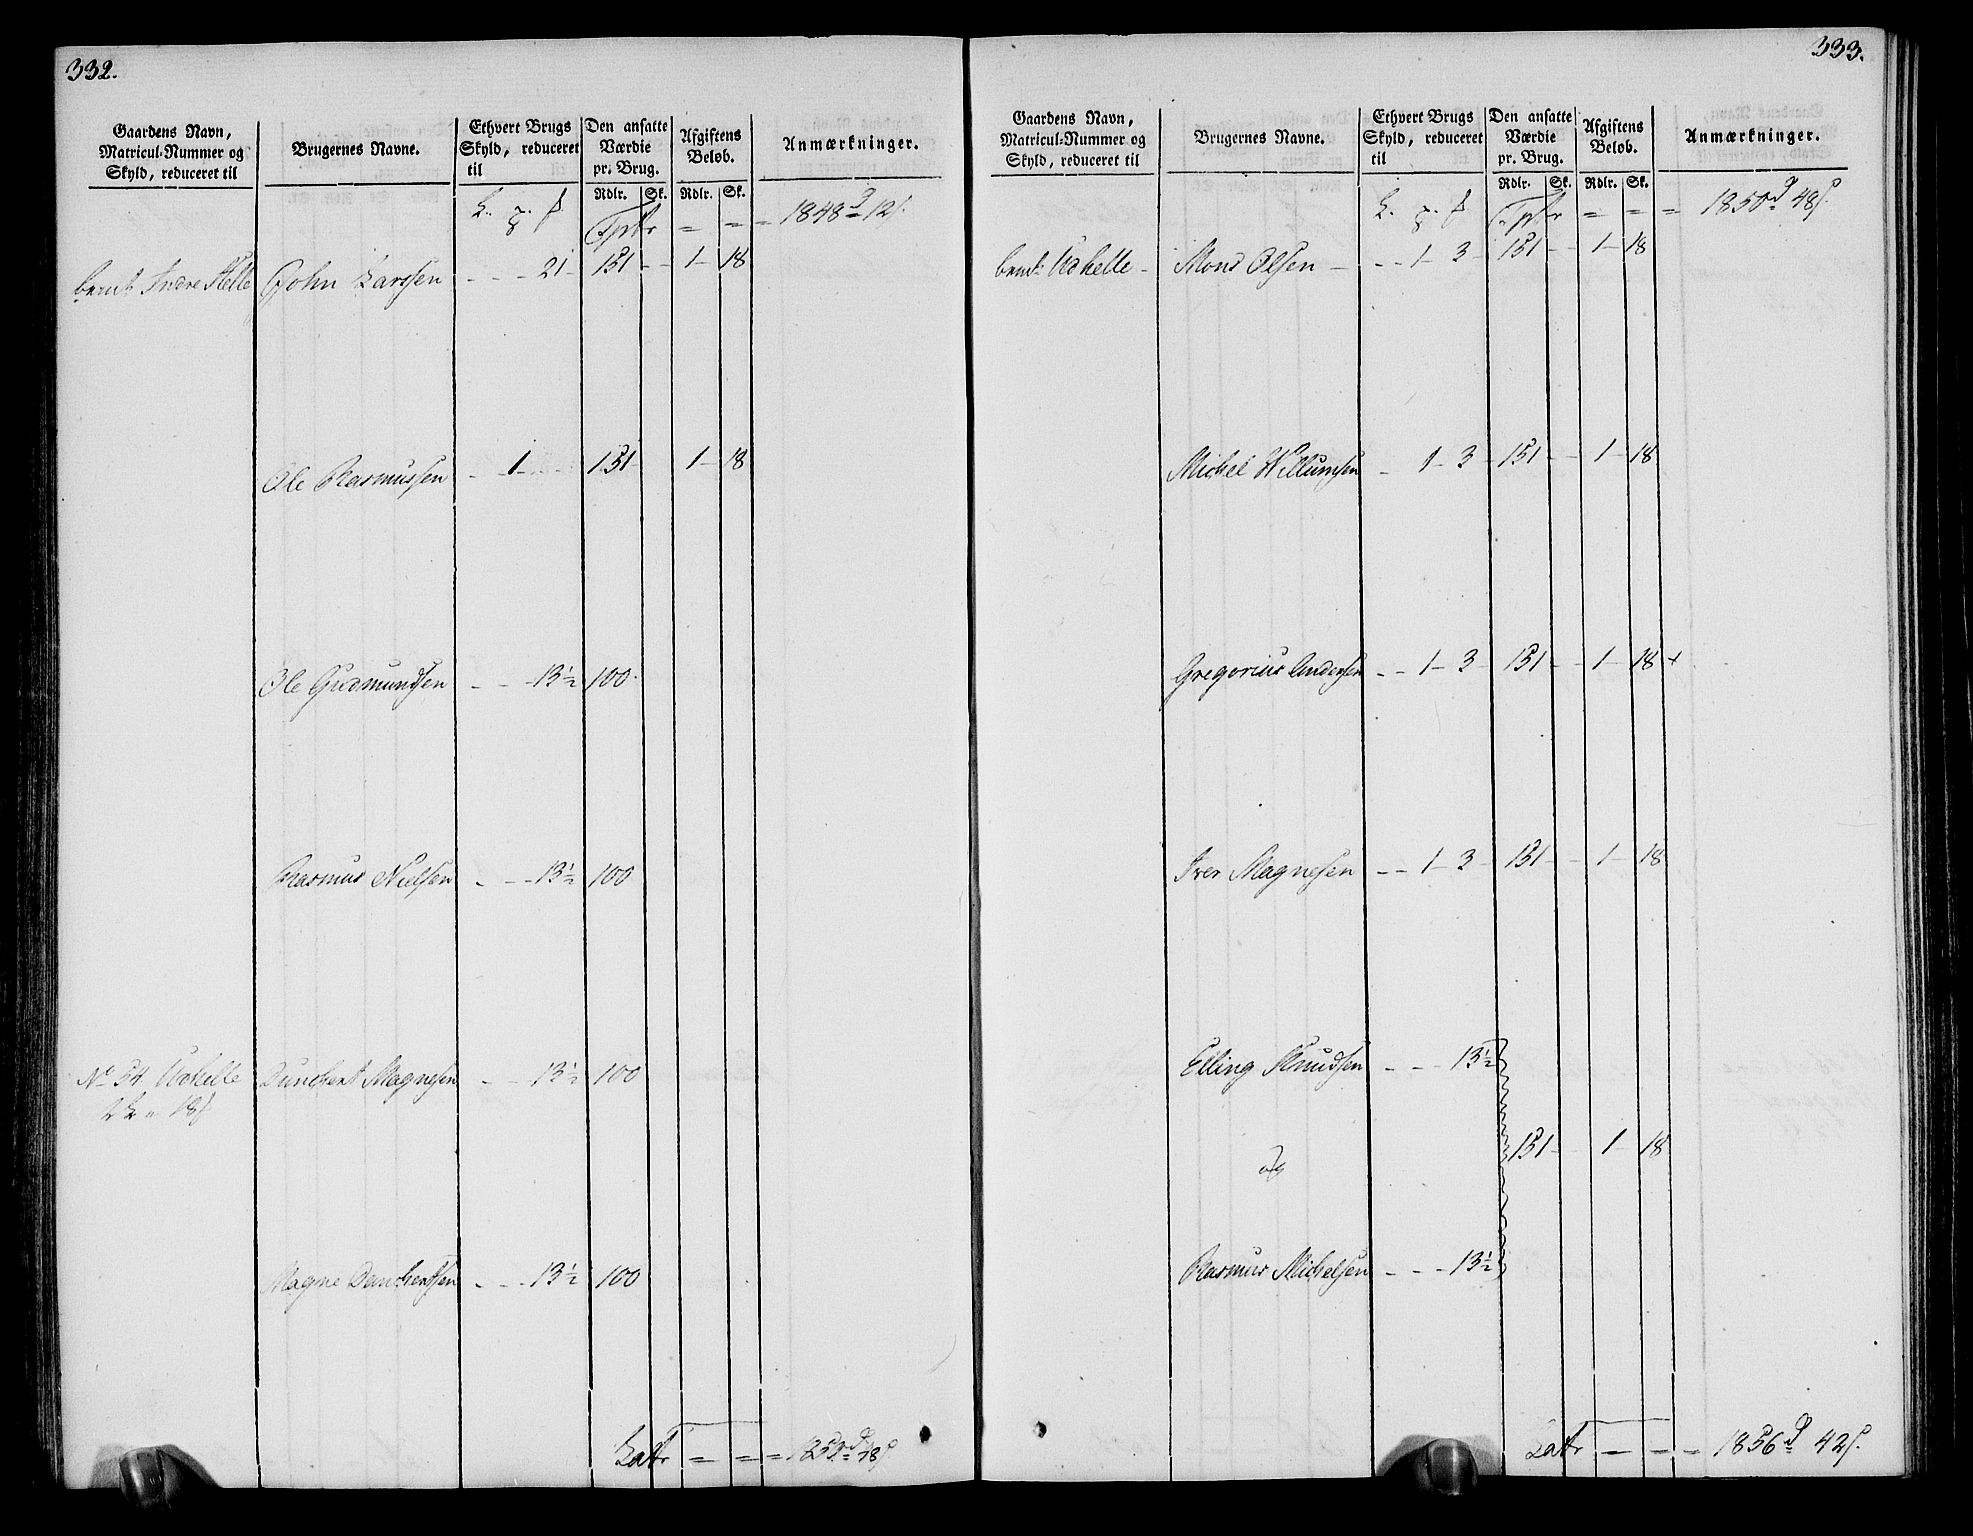 332.
Gaardens Navn, Matricul-Nummer og Skyld, reduceret til
Brugernes Navne.
Ethvert Brugs Skyld, reduceret til
Den ansatte Værdie pr. Brug.
Afgiftens Beløb.
Anmærkninger.
Rdlr. Sk. Rdlr. Sk.
Tpt = = = 1848 d 12 s.
bemt Indre Helle John Larssen - - - 21 - 151 - - 1 - 18
Ole Rasmussen - 1 - - - 151 - 1 - 18
Ole Gudmundsen - - - 13½ 100
Rasmus Nielsen - - - 13½ 100
No 54 Udhelle Dunchert Magnesen - - - 13½ 100
Magne Danchertsen - - - 13½ 100
Latr = = =
333.
Gaardens Navn, Matricul-Nummer og Skyld, reduceret til
Brugernes Navne.
Ethvert Brugs Skyld, reduceret til
Den ansatte Værdie pr. Brug.
Afgiftens Beløb.
Anmærkninger.
Rdlr. Sk. Rdlr. Sk.
Tpt = = = 1850 d 48 s.
bemt Udhelle - Mons Olsen - - - 1 - 3 - 151 - - 1 - 18
Michel Willumsen - 1 - 3 - 151 - - 1 - 18
Gregorius Andersen - - 1 - 3 - 151 - - 1 - 18 +
Iver Magnesen - - 1 - 3 - 151 - - 1 - 18
Elling Knudsen - - - 13½
og 151 - - 1 - 18
Rasmus Michelsen - - - 13½
Latr = = = 1856 d 42 s.